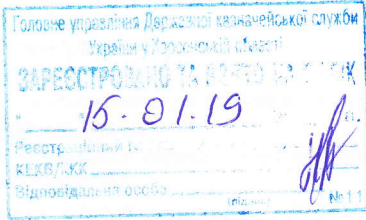 Головне управління Державної казначейської служби
України у Херсонській області
ЗАРЕЄСТРОВАНО ТА ВЗЯТО НА ОБЛІК
15.01.19
Реєстраційний №
КЕКВ/ККК
Відповідальна особа
(підпис) №11